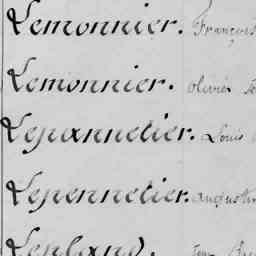 Lemonnier. François
Lemonnier. olivier
Lepannetier. Louis
Lepennetier. augustin